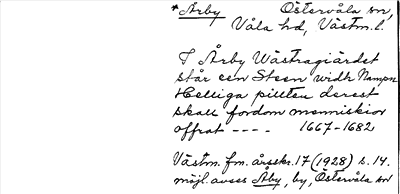 *Årby Östervåla sn,
Våla hd, Västm. l.
I Årby Wästragiärdet
står een Steen widh Nampn
Helliga pillten derest
skall fordom menniskior
offrat ---- 1667-1682
Västm. fm. årsskr. 17 (1928) s. 14.
möjl. avses Åby, by, Östervåla sn